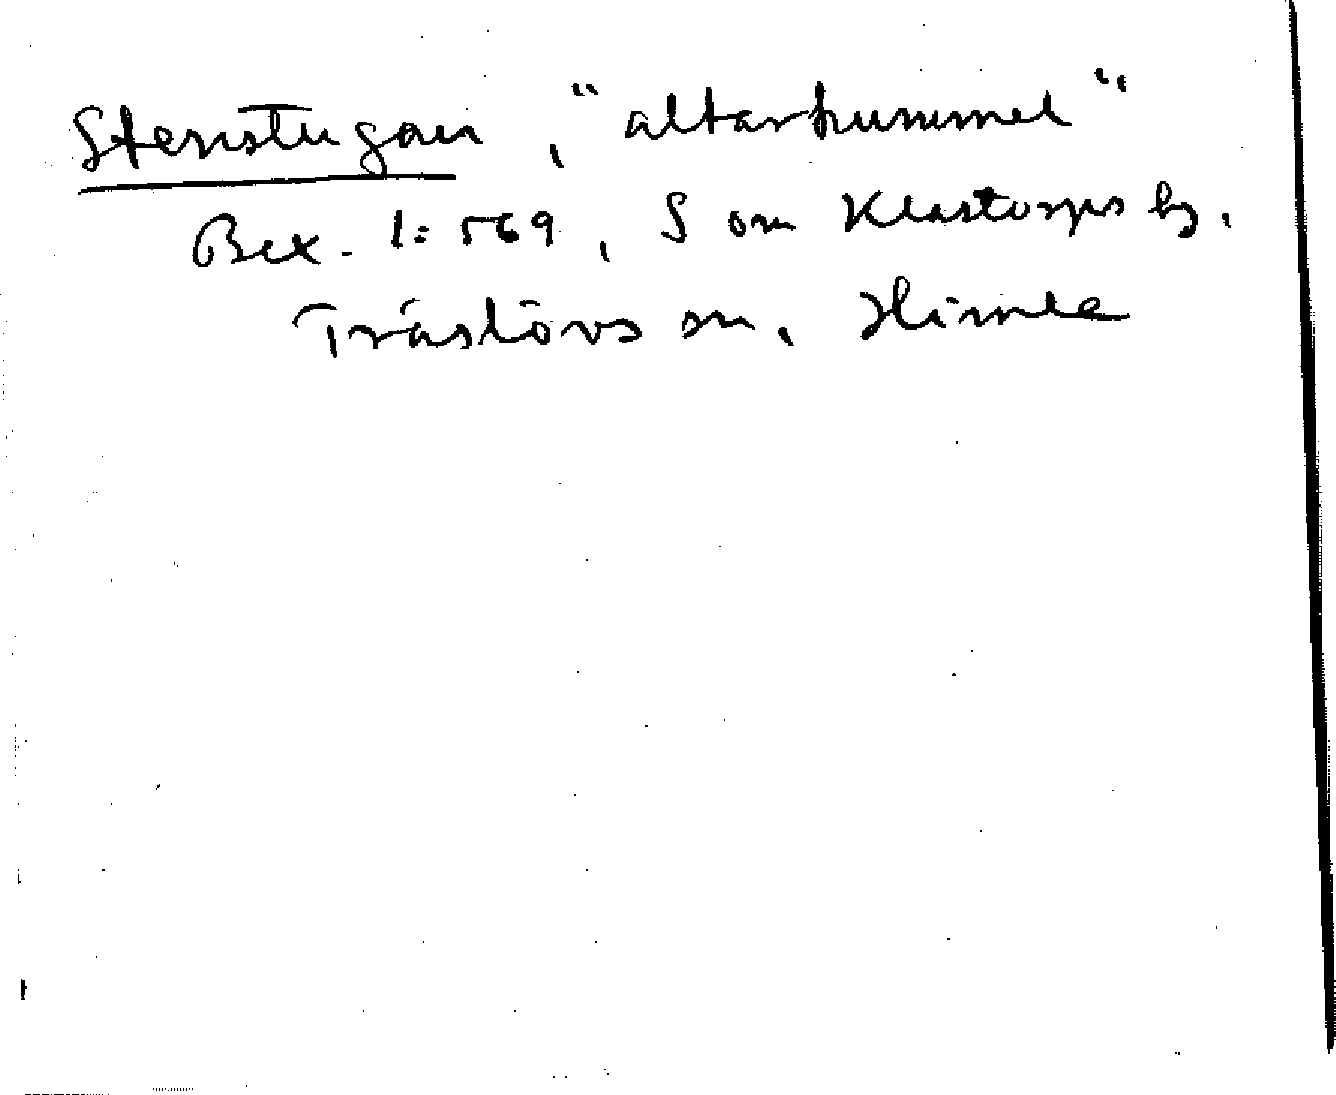 Stenstugan, "altarhummel"
Bex. 1:569, S om Klastorps by.
Träslövs sn. Himle